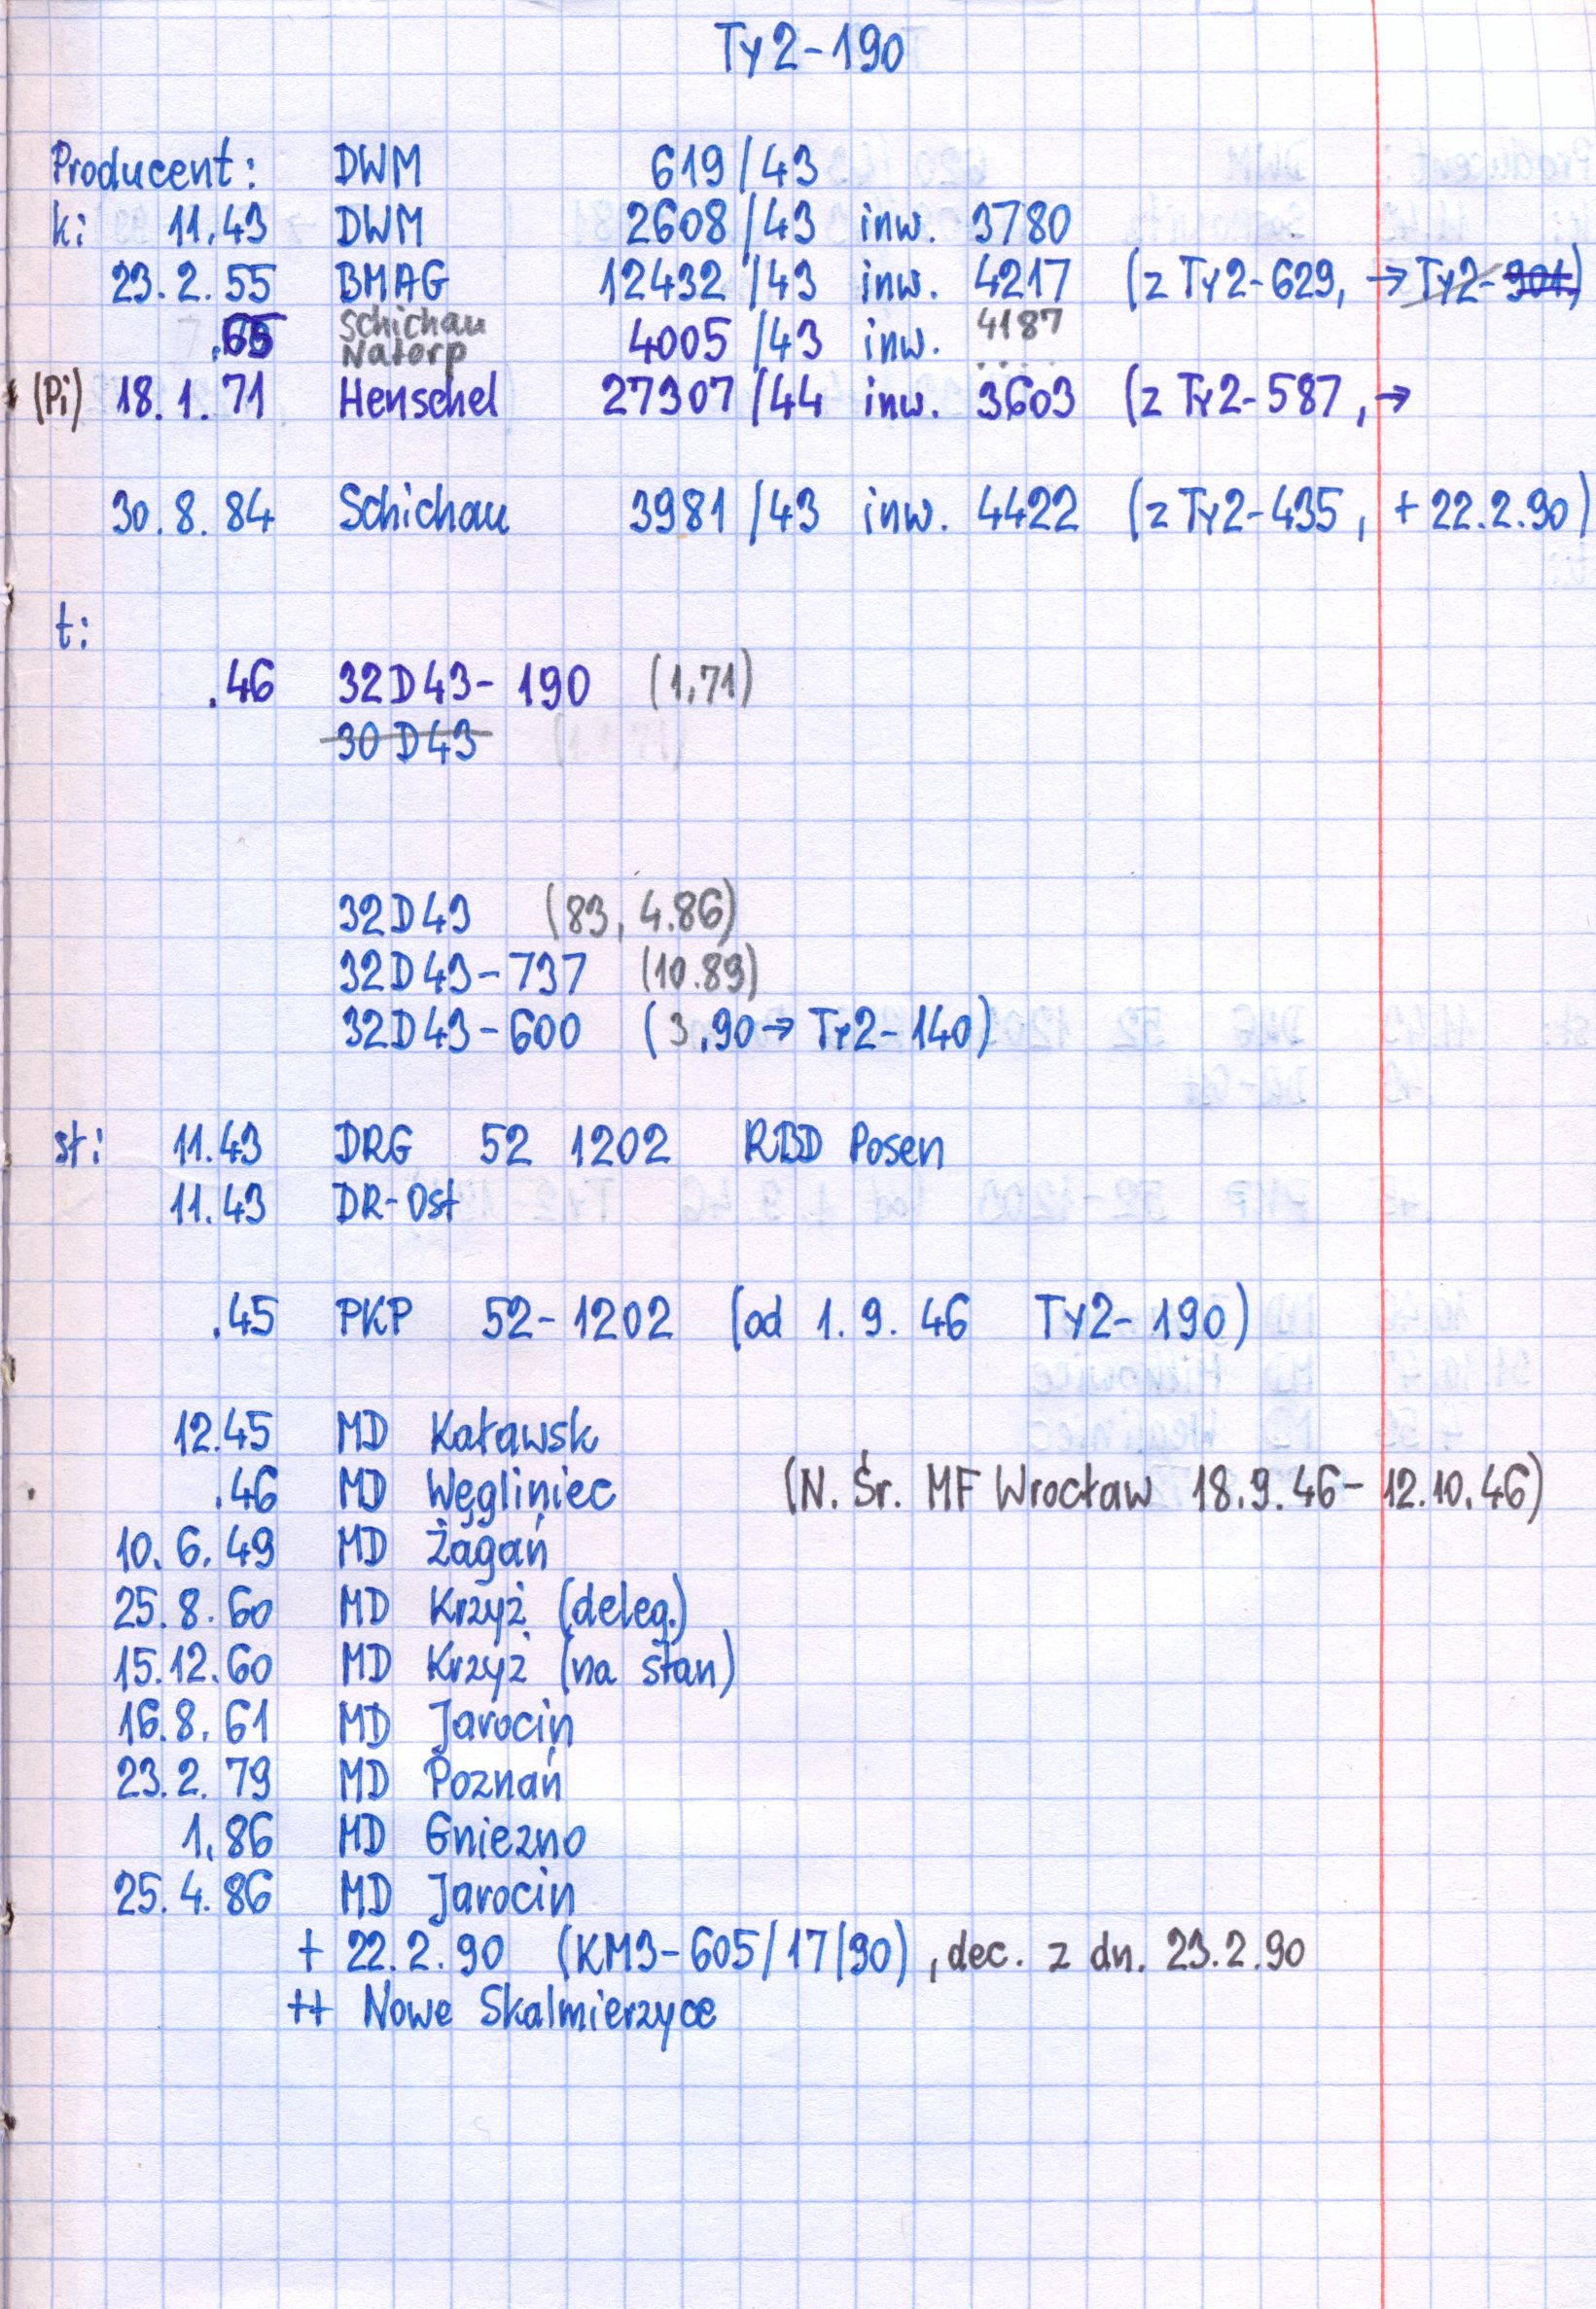 Ty2-190
Producent: DWM 619/43
k: 11.43 DWM 2608/43 inw. 3780
23.2.55 BMAG 12432/43 inw. 4217 (z Ty2-629, → Ty2-901)
Schichau 4187
Natorp 4005/43 inw. ....
(Pi) 18.1.71 Henschel 27307/44 inw. 3603 (z Ty2-587, →
30.8.84 Schichau 3981/43 inw. 4422 (z Ty2-435, + 22.2.90)
t:
.46 32D43-190 (1.71)
30D43
32D43 (83, 4.86)
32D43-737 (10.89)
32D43-600 (3.90→ Ty2-140)
st: 11.43 DRG 52 1202 RBD Posen
11.43 DR-Ost
.45 PKP 52-1202 (od 1.9.46 Ty2-190)
12.45 MD Kaławsk
.46 MD Węgliniec (N. Śr. MF Wrocław 18.9.46- 12.10.46)
10.6.49 MD Żagań
25.8.60 MD Krzyż (deleg.)
15.12.60 MD Krzyż (na stan)
16.8.61 MD Jarocin
23.2.79 MD Poznań
1.86 MD Gniezno
25.4.86 MD Jarocin
+ 22.2.90 (KM3-605/17/90), dec. z dn. 23.2.90
++ Nowe Skalmierzyce